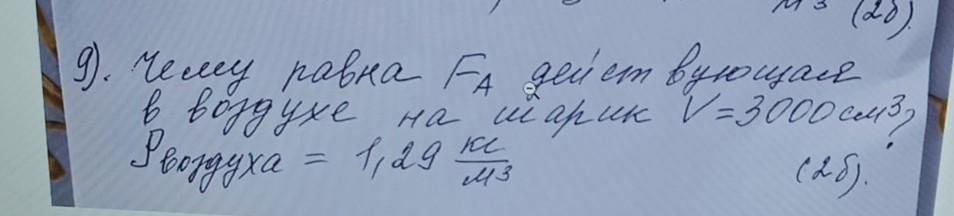 м3 (2б).
9). Чему равна FA действующая
в воздухе на шарик V=3000см³?
ρвоздуха = 1,29 кг/м3 (2б).